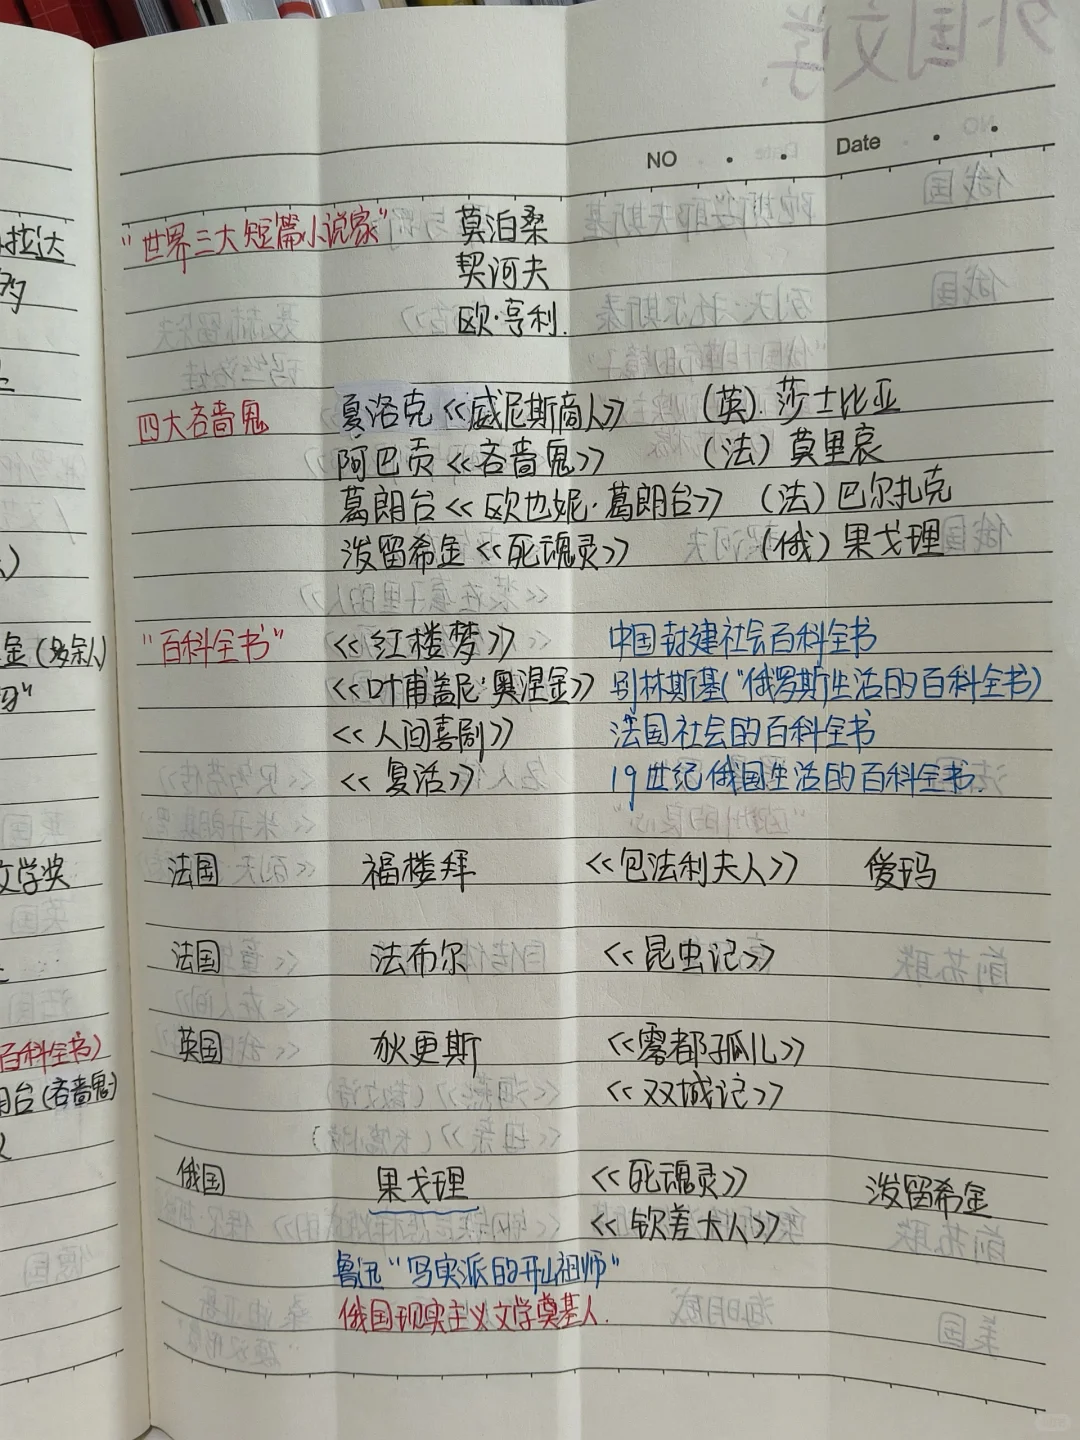 NO Date
"世界三大短篇小说家" 莫泊桑
契诃夫
欧·亨利.
四大吝啬鬼 夏洛克《威尼斯商人》 (英). 莎士比亚
阿巴贡《吝啬鬼》 (法) 莫里哀
葛朗台《欧也妮·葛朗台》 (法) 巴尔扎克
泼留希金《死魂灵》 (俄) 果戈理
"百科全书" 《红楼梦》 中国封建社会百科全书
《叶甫盖尼·奥涅金》 别林斯基("俄罗斯生活的百科全书)
《人间喜剧》 法国社会的百科全书
《复活》 19世纪俄国生活的百科全书.
法国 福楼拜 《包法利夫人》 爱玛
法国 法布尔 《昆虫记》
英国 狄更斯 《雾都孤儿》
《双城记》
俄国 果戈理 《死魂灵》 泼留希金
《钦差大人》
鲁迅"写实派的开山祖师"
俄国现实主义文学奠基人.
拉达
金(多余人)
文学奖
百科全书)
台(吝啬鬼)